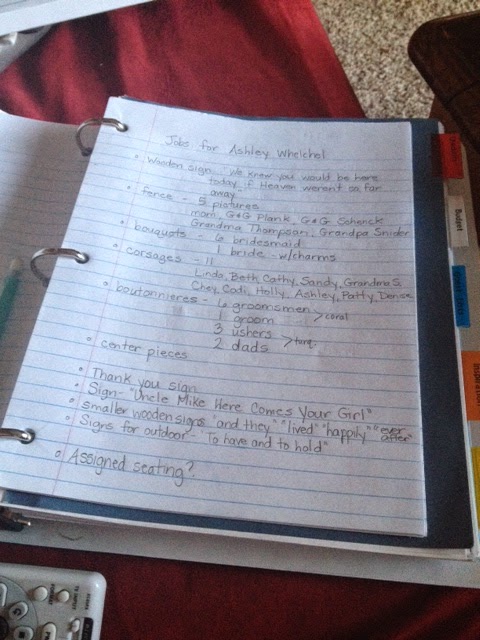 Jobs for Ashley Whelchel
• Wooden sign - "We know you would be here
today if Heaven weren't so far
away
• fence - 5 pictures
mom, G+G Plank, G+G Schenck
Grandma Thompson, Grandpa Snider
• bouquets - 6 bridesmaid
1 bride - w/charms
• corsages - 11
Linda, Beth, Cathy, Sandy, Grandma S.
Chey, Codi, Holly, Ashley, Patty, Denise
• boutonnieres - 6 groomsmen > coral
1 groom
3 ushers > turq.
2 dads
• center pieces
• Thank you sign
• Sign - "Uncle Mike Here Comes Your Girl"
• smaller wooden signs "and they" "lived" "happily" "ever after"
• Signs for outdoor - "To have and to hold"
• Assigned seating?
Budget